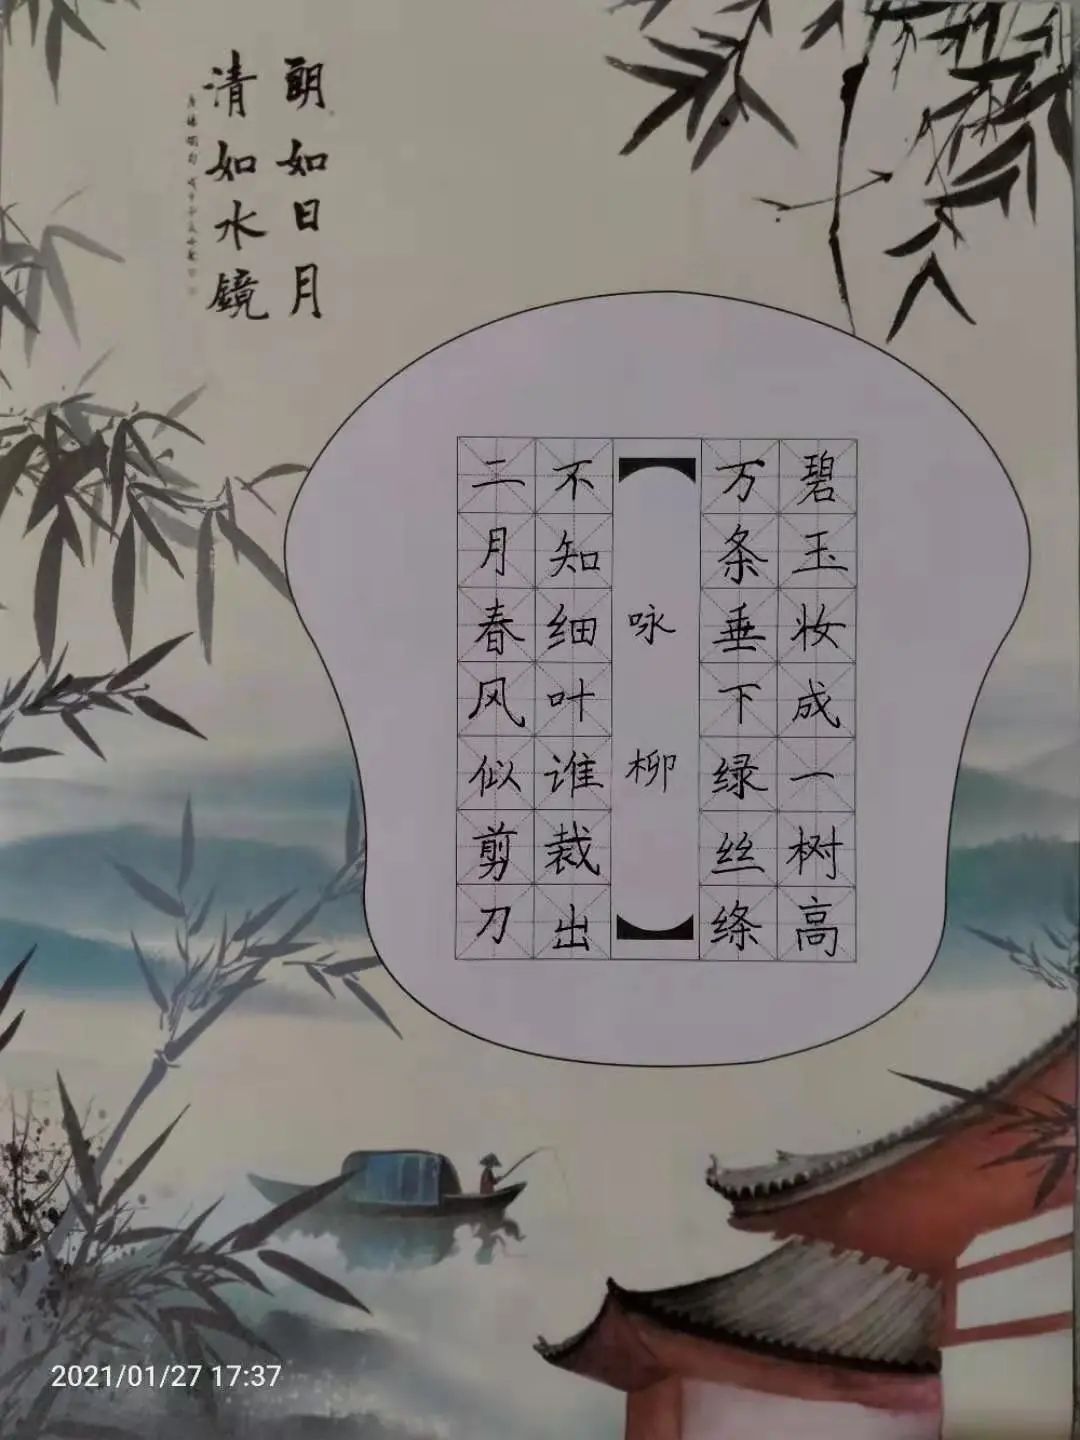 朗如日月
清如水镜
碧玉妆成一树高
万条垂下绿丝绦
咏柳
不知细叶谁裁出
二月春风似剪刀
2021/01/27 17:37